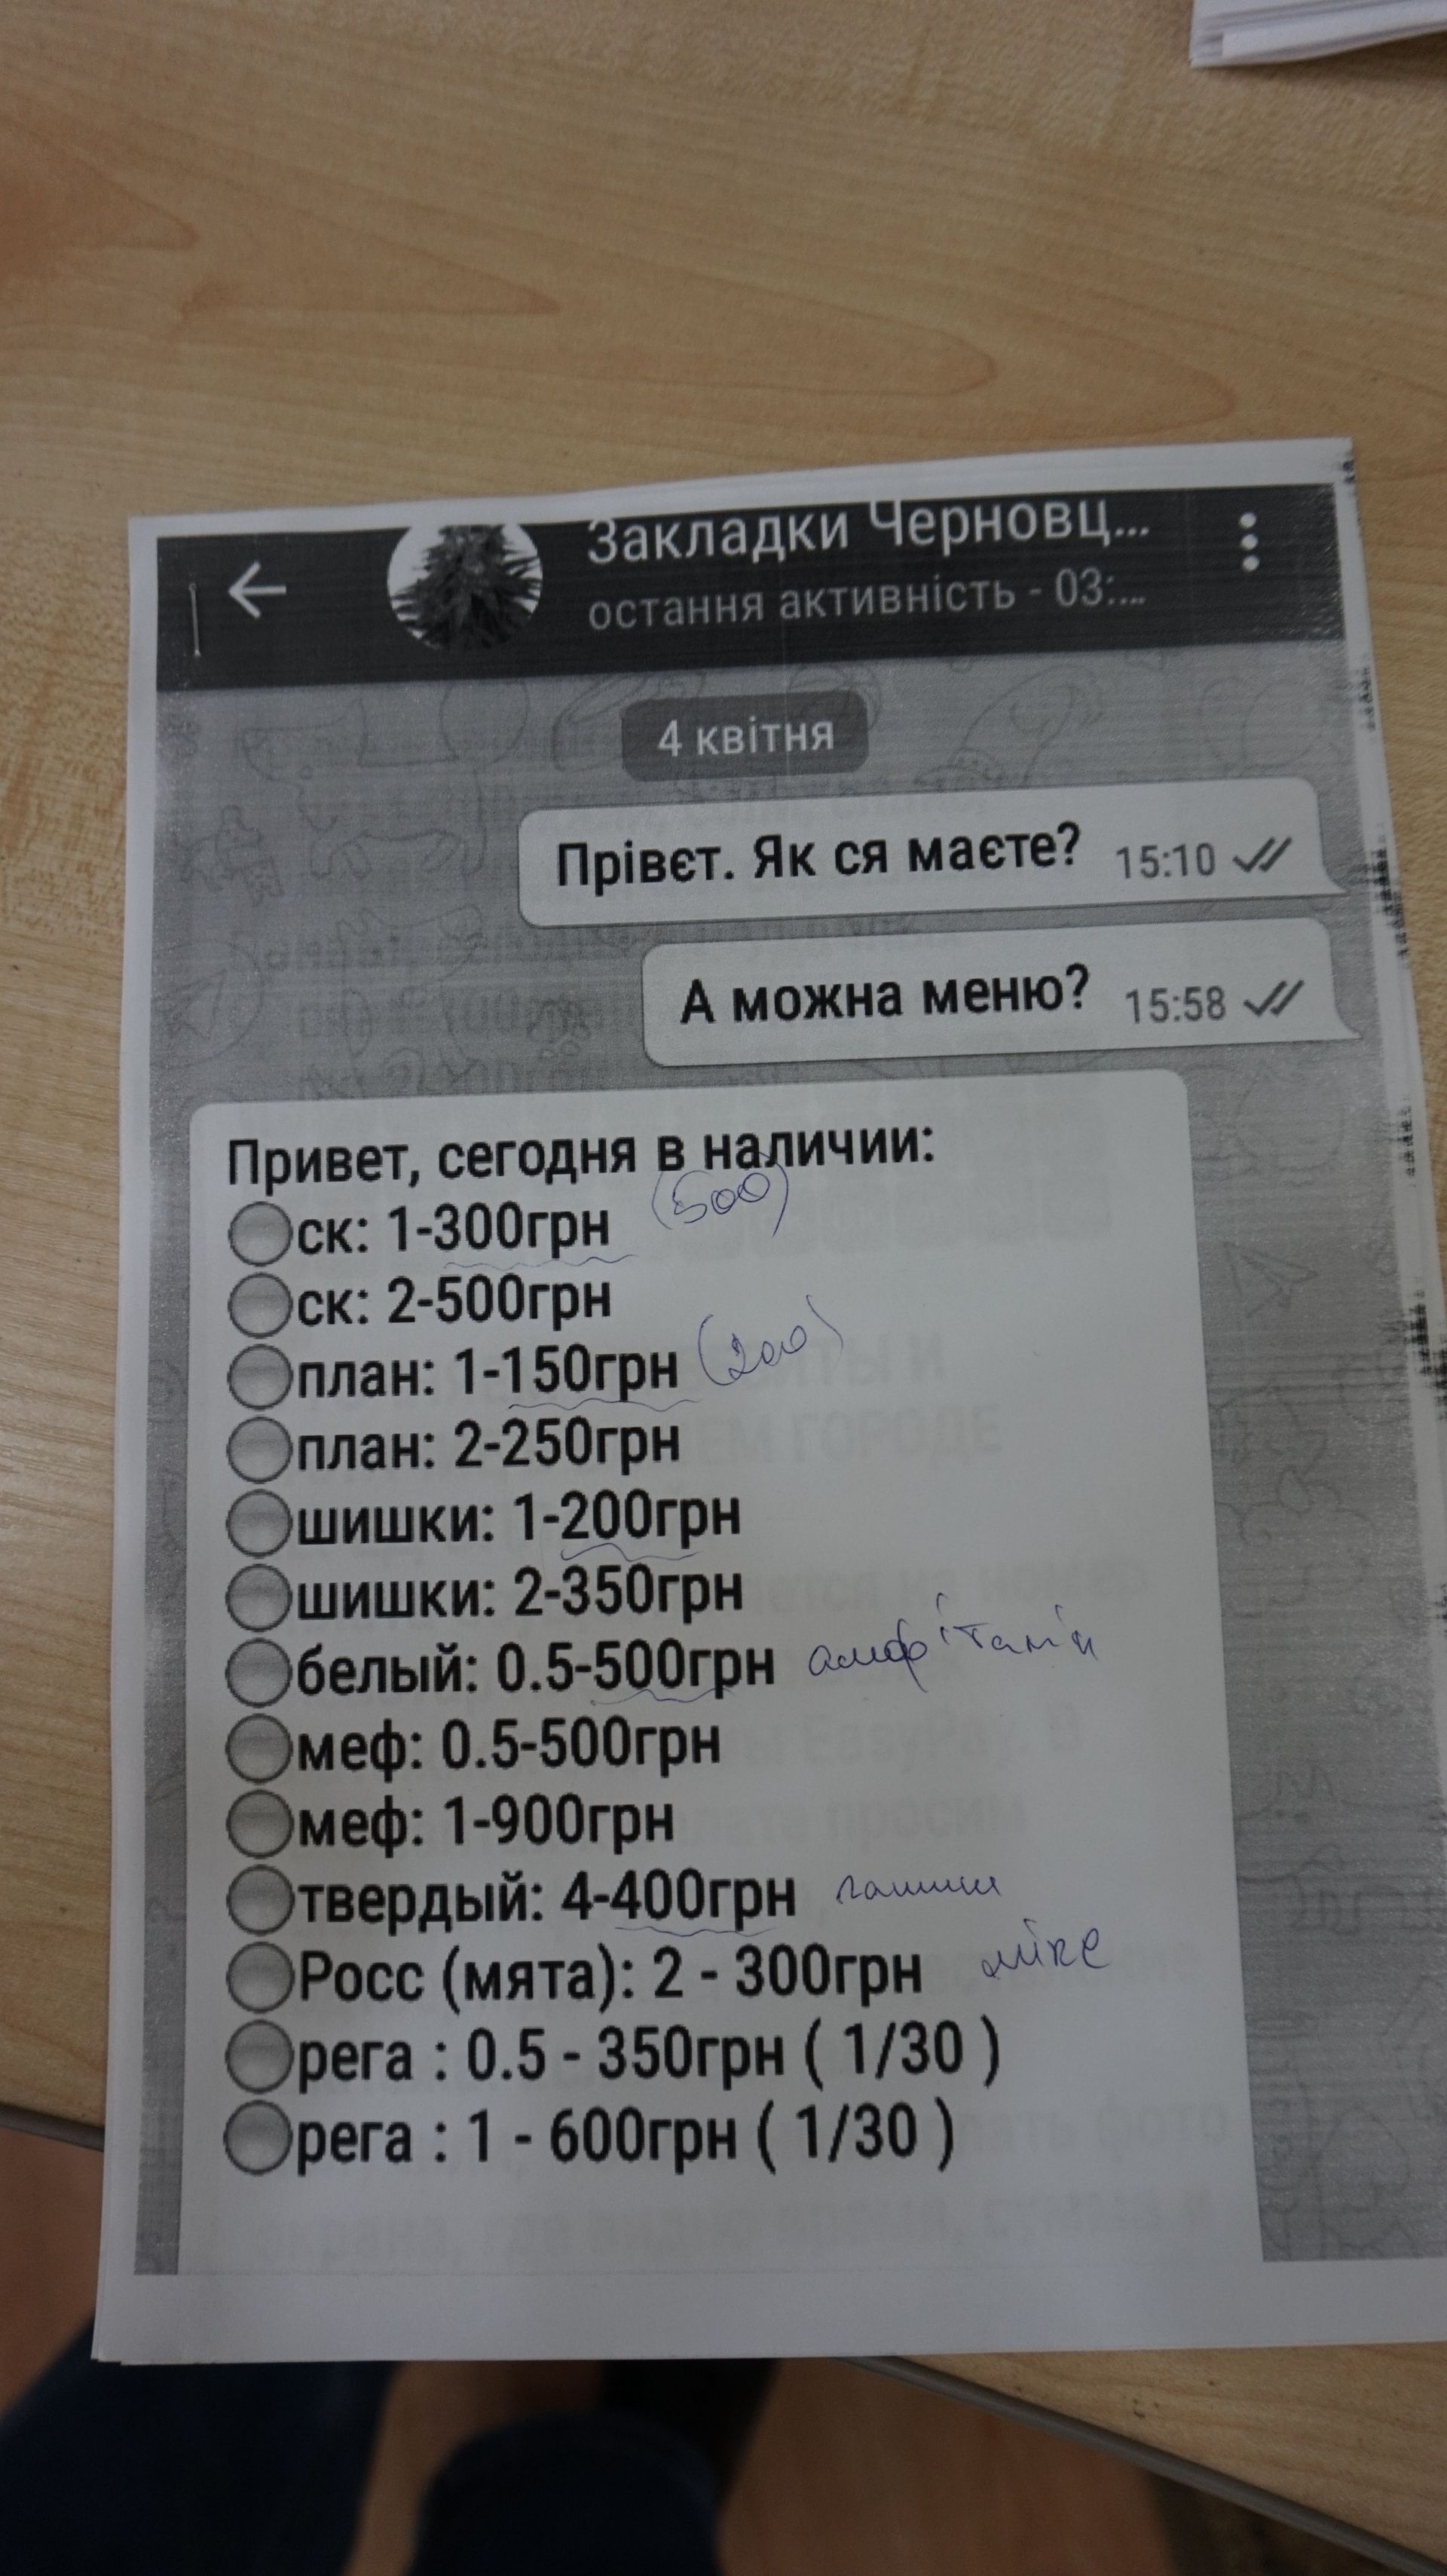 Закладки Черновц...
остання активність - 03:...
4 квітня
Прівєт. Як ся маєте? 15:10
А можна меню? 15:58
Привет, сегодня в наличии:
ск: 1-300грн (500)
ск: 2-500грн
план: 1-150грн (200)
план: 2-250грн
шишки: 1-200грн
шишки: 2-350грн
белый: 0.5-500грн амфітамін
меф: 0.5-500грн
меф: 1-900грн
твердый: 4-400грн
Росс (мята): 2 - 300грн мікс
рега : 0.5 - 350грн ( 1/30 )
рега : 1 - 600грн ( 1/30 )